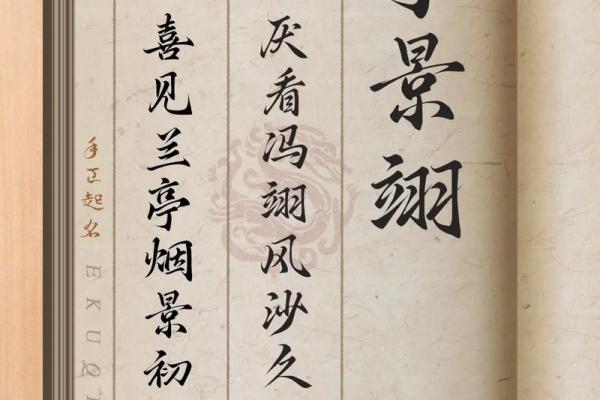 景翊
厌看冯翊风沙久
喜见兰亭烟景初
手工起名
EKUQ